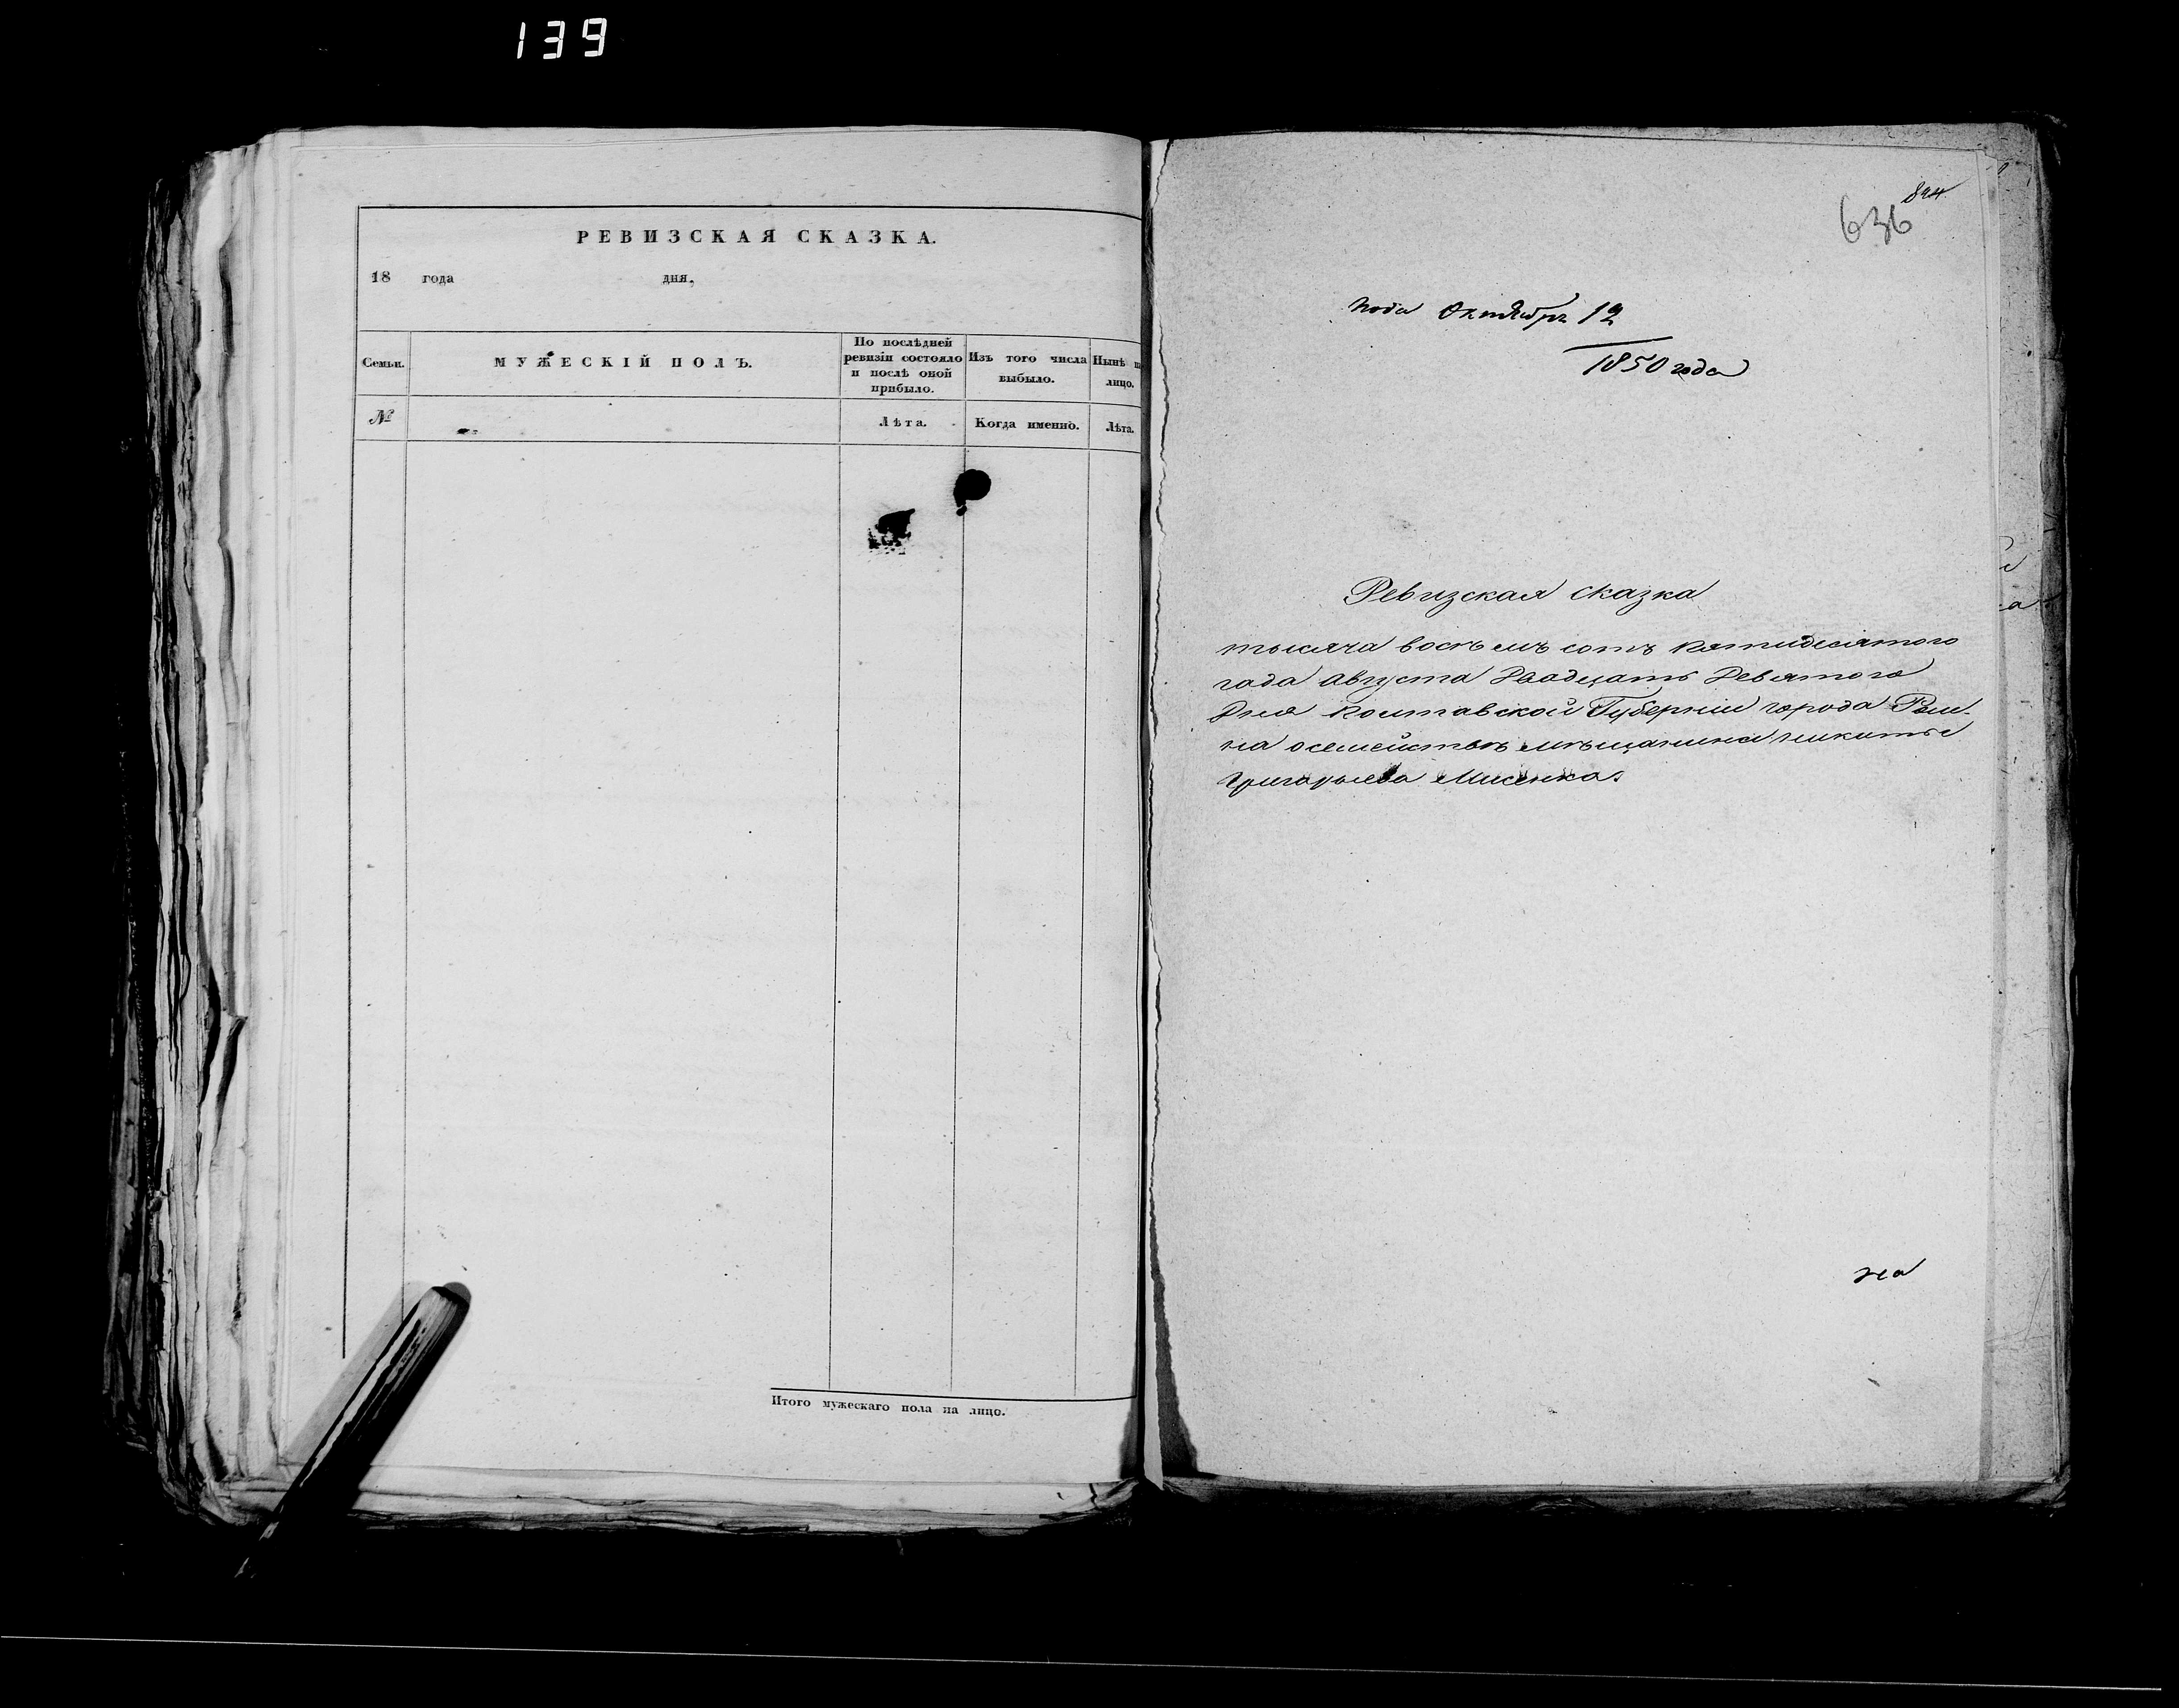 139
РЕВИЗСКАЯ СКАЗКА.
18 года дня.
Семьи.
МУЖЕСКІЙ ПОЛЪ.
По послѣдней
ревизіи состояло
и послѣ оной
прибыло.
Изъ того числа
выбыло.
Нынѣ
лицо.
№
Лѣта.
Когда именно.
Лѣта.
Итого мужескаго пола на лицо.
636
Октября 12
1850 года
Ревизская сказка
тысяча восъ емъ сотъ пятидесятого
года августа двадцать девятого
дня полтавской Губерніи города Ром-
на осемействѣ мѣщанина никиты
Григорьева Мисенка.
на